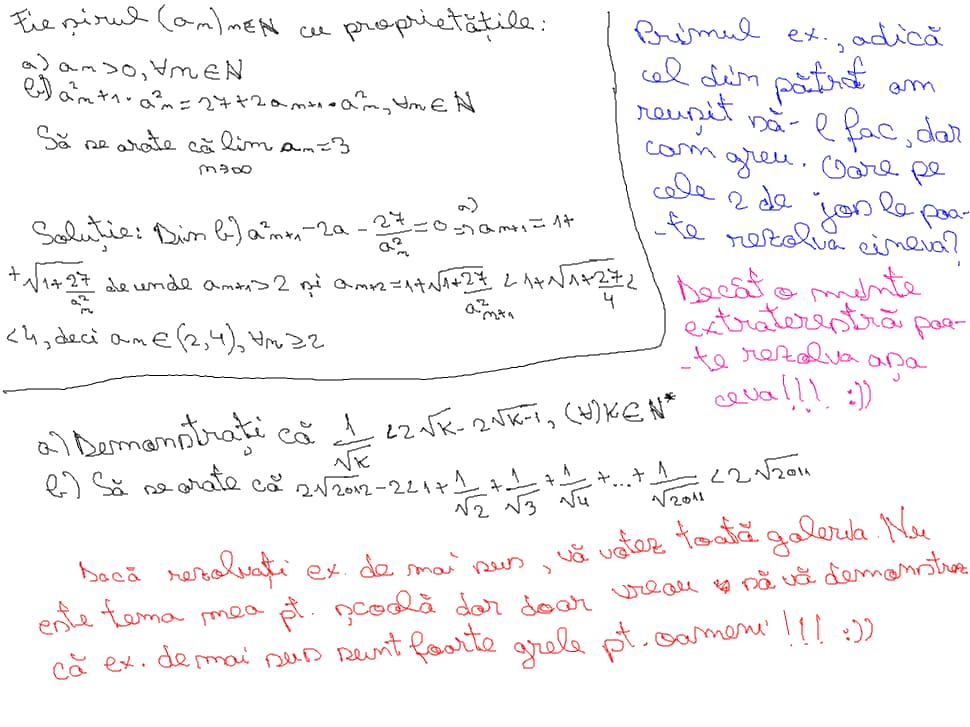 Fie șirul (am)m∈N cu proprietățile:
a) am>0, ∀m∈N
b) a²m+1 · a²m = 27+2am+1 · a²m, ∀m∈N
Să se arate că lim am=3
m→∞
Soluție: Din b) a²m+1 - 2a - 27/a²m = 0 a)⇒ am+1 = 1+
+√1+27/a²m de unde am+1>2 și am+2=1+√1+27/a²m+1 <1+√1+27/4<
<4, deci am∈(2,4), ∀m≥2
Primul ex., adică
cel din pătrat am
reușit să-l fac, dar
cam greu. Oare pe
cele 2 de jos le poa-
-te rezolva cineva?
Decât o minte
extraterestră poa-
-te rezolva așa
ceva!!! :))
a) Demonstrați că 1/√K <2√K-2√K-1, (∀)K∈N*
b) Să se arate că 2√2012-2<1+1/√2+1/√3+1/√4+...+1/√2011<2√2011
Dacă rezolvați ex. de mai sus, vă votez toată galeria. Nu
este tema mea pt. școală dar doar vreau să vă demonstrez
că ex. de mai sus sunt foarte grele pt. oameni!!! :))